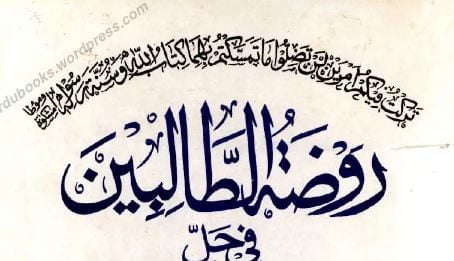 rdubooks.wordpress.com
تركت فيكم امرين لن تضلوا ما تمسكتم بهما كتاب الله وسنة رسوله
رَوْضَةُ الطَّالِبِينَ
فی حَلِّ